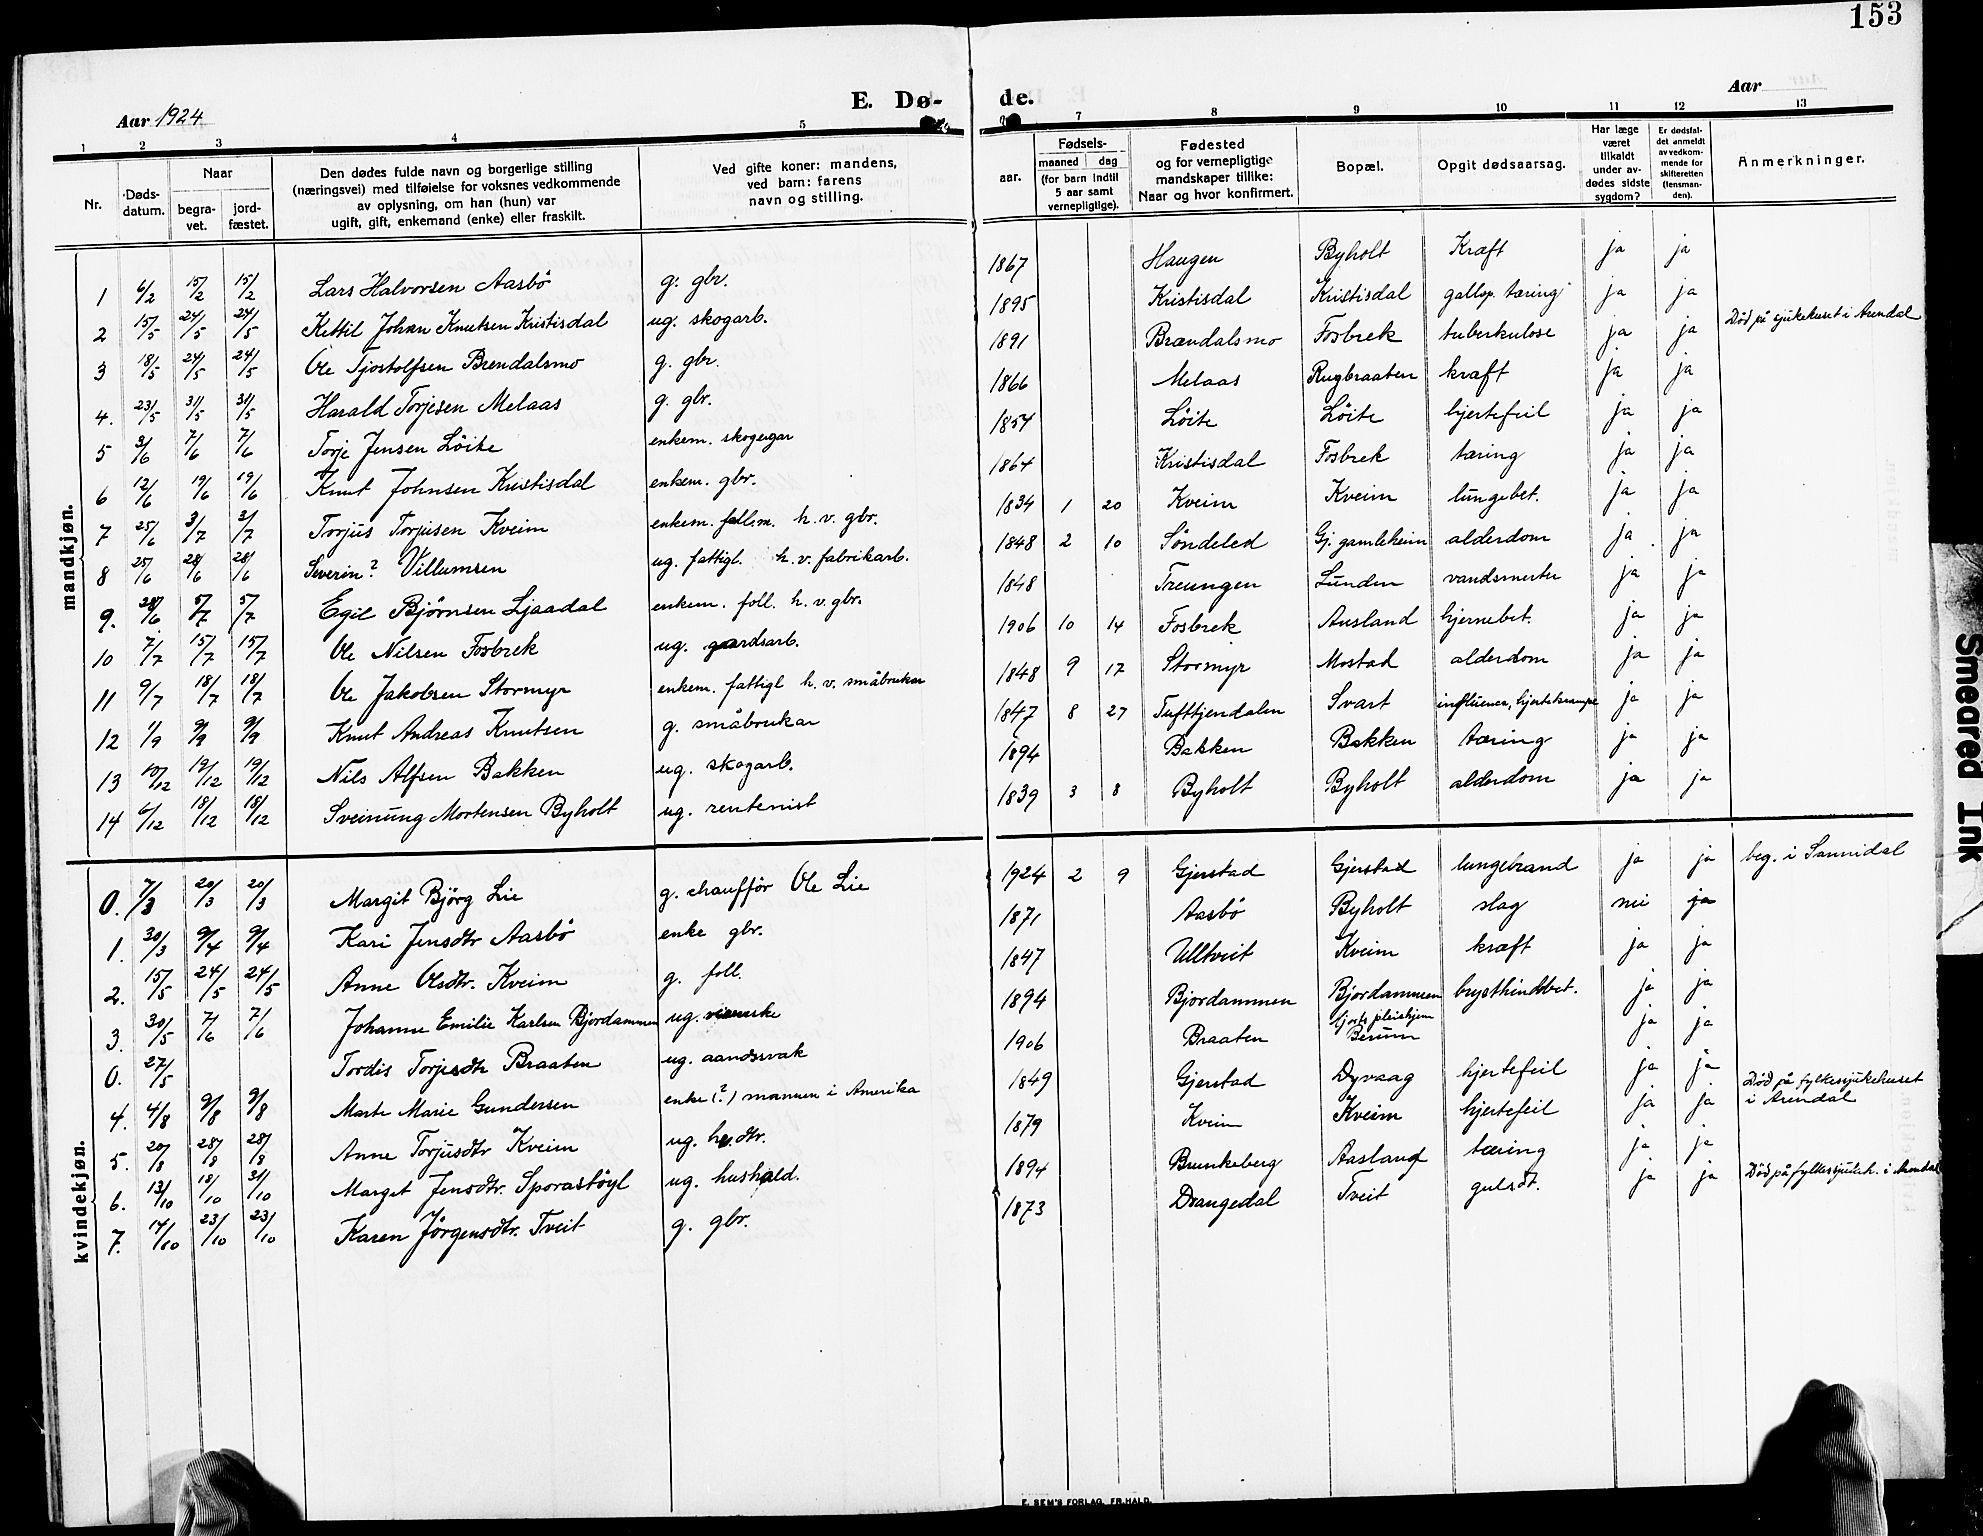 153
Aar 1924
E. Dø-
de.
Aar
1 2 3 4 5 7 8 9 10 11 12 13
Nr.
Døds-
datum.
Naar
begra-
vet.
jord-
fæstet.
Den dødes fulde navn og borgerlige stilling
(næringsvei) med tilføielse for voksnes vedkommende
av oplysning, om han (hun) var
ugift, gift, enkemand (enke) eller fraskilt.
Ved gifte koner: mandens,
ved barn: farens
navn og stilling.
aar.
Fødsels-
maaned dag
(for barn indtil
5 aar samt
vernepligtige).
Fødested
og for vernepligtige
mandskaper tillike:
Naar og hvor konfirmert.
Bopæl.
Opgit dødsaarsag.
Har læge
været
tilkaldt
under av-
dødes sidste
sygdom?
Er dødsfal-
det anmeldt
av vedkom-
mende for
skifteretten
(lensman-
den).
Anmerkninger.
mandkjøn.
1 6/2 15/2 15/2 Lars Halvorsen Aasbö g. gbr. 1867 Haugen Byholt Kræft ja ja
2 15/5 24/5 24/5 Kettil Johan Knutsen Kristisdal ug. skogarb. 1895 Kristisdal Kristisdal gallop. tæring ja ja
3 18/5 24/5 24/5 Ole Tjostolfsen Brendalsmo g. gbr. 1891 Brændalsmo Fosbrek tuberkulose ja ja Död på sjukehuset i Arendal
4. 23/5 31/5 31/5 Harald Torjesen Melaas g. gbr. 1866 Melaas Rugbraaten kræft ja ja
5 3/6 7/6 7/6 Torje Jensen Löite enkem. skogeigar 1854 Löite Löite hjertefeil ja ja
6 12/6 19/6 19/6 Knut Johnsen Kristisdal enkem. gbr. 1864 Kristisdal Fosbrek tæring ja ja
7 25/6 3/7 3/7 Torjus Torjusen Kveim enkem. follm. h. v. gbr. 1834 1 20 Kveim Kveim lungebet. ja ja
8 25/6 28/6 28/6 Severin? Villumsen ug. fattigl. h. v. fabrikarb. 1848 2 10 Söndeled Gj. gamleheim alderdom ja ja
9. 28/6 5/7 5/7 Egil Bjørnsen Ljaadal enkem. foll. h. v. gbr. 1848 Treungen Lunden vandsmerter ja ja
10 7/7 15/7 15/7 Ole Nilsen Fosbrek ug. gardsarb. 1906 10 14 Fosbrek Ausland hjernebet. ja ja
11 9/7 18/7 18/7 Ole Jakobsen Stormyr enkem. fattigl h. v. småbrukar 1848 9 17 Stormyr Mostad alderdom ja ja
12 1/9 9/9 9/9 Knut Andreas Knutsen g. småbrukar 1847 8 27 Tufttjendalen Svart influensa, hjertekrampe ja ja
13 10/12 19/12 19/12 Nils Alfsen Bakken ug. skogarb. 1894 Bakken Bakken tæring ja ja
14 6/12 18/12 18/12 Sveinung Mortensen Byholt ug. rentenist 1839 3 8 Byholt Byholt alderdom ja ja
kvindekjøn.
0. 7/3 20/3 20/3 Margit Björg Lie g. chaufför Ole Lie 1924 2 9 Gjerstad Gjerstad lungebrand ja ja beg. i Sannidal
1. 30/3 9/4 9/4 Kari Jensdtr Aasbö enke gbr. 1871 Aasbö Byholt slag nei ja
2. 15/5 24/5 24/5 Anne Olsdtr. Kveim g. foll. 1847 Ulltveit Kveim kræft ja ja
3. 30/5 7/6 7/6 Johanne Emilie Karlsen Bjordammen ug. 1894 Bjordammen Bjordammen brysthindebet. ja ja
0. 27/5 Tordis Torjusdtr Braaten ug. aandssvak 1906 Braaten pleiehjem Berum ja ja
4. 4/8 9/8 9/8 Marte Marie Gundersen enke (?) mannen i Amerika 1849 Gjerstad Dyvaag hjertefeil ja ja Död på fylkessjukehuset
i Arendal
5. 20/8 28/8 28/8 Anne Torjusdtr Kveim ug. h.dtr. 1879 Kveim Kveim hjertefeil ja ja
6. 13/10 18/10 31/10 Marget Jensdtr. Sporastöyl ug. hushald. 1894 Brunkeberg Aasland tæring ja ja
7. 14/10 23/10 23/10 Karen Jörgensdtr. Tveit g. gbr. 1873 Drangedal Tveit gulsot. ja ja Död på fylkessjukeh. i Arendal
E. SEM'S FORLAG, FR.HALD.
Smeared Ink